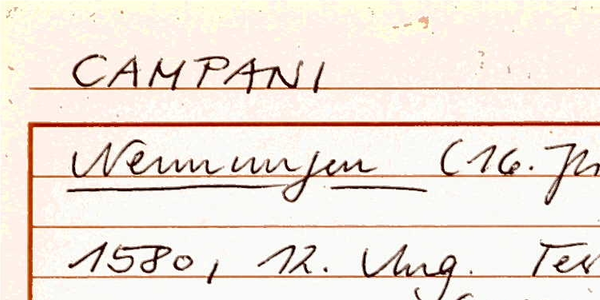 CAMPANI
Nennungen (16. Jh
1580, 12. Aug. Ter